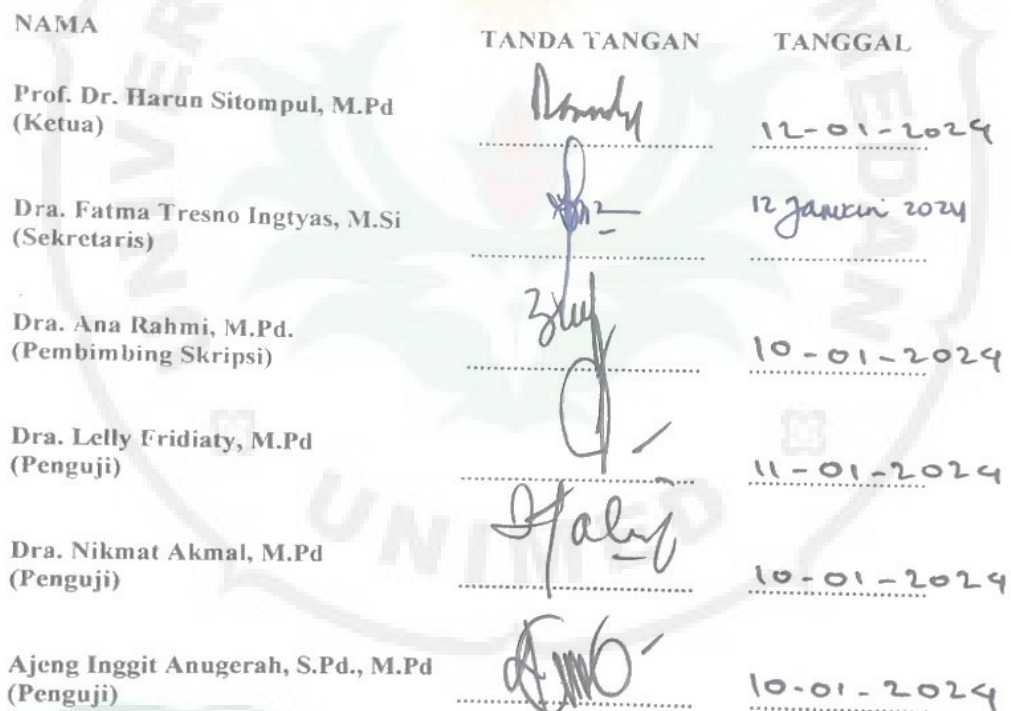 NAMA TANDA TANGAN TANGGAL
Prof. Dr. Harun Sitompul, M.Pd
(Ketua) 12-01-2024
Dra. Fatma Tresno Ingtyas, M.Si 12 Januari 2024
(Sekretaris)
Dra. Ana Rahmi, M.Pd.
(Pembimbing Skripsi) 10-01-2024
Dra. Lelly Fridiaty, M.Pd
(Penguji) 11-01-2024
Dra. Nikmat Akmal, M.Pd
(Penguji) 10-01-2024
Ajeng Inggit Anugerah, S.Pd., M.Pd
(Penguji) 10-01-2024
UNIMED